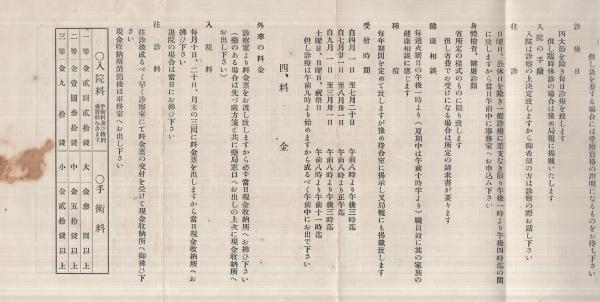 但し急を要する場合には手術資格の證明になるものをお持ち下さい
診療日
四大節を除き毎日診療を致します
但し臨時休診の場合は豫め局報に掲載いたします
入院の手續
入院は診察の上決定致しますから御希望の方は診察の際お話し下さい
往診
日曜日、公休日を除き一般診療に差支なき限り午後一時より午後四時迄の間
に致しますから當日午前中に事務室へお申込み下さい
身體檢査、健康診斷
省所定の樣式のものに限り致します
但し省費でお受けになる場合は所定の請求書が要ります
健康相談
毎週火曜日の午後一時より(夏期中は午前十時半より)職員竝に其の家族の
健康相談に應じます
種痘
毎年期間を定めて致しますが豫め待合室に掲示し又局報にも掲載致します
受付時間
自四月一日至七月二十日 午前八時より午後三時迄
自七月廿一日至八月卅一日 午前八時より正午迄
自九月一日至三月卅一日 午前八時より午後三時迄
土曜日、日曜日、祝祭日 午前八時より午前十一時迄
但し診療は午前九時より始めますから成るべく午前中にお出で下さい
四、料金
外來の料金
診察室より料金票をお渡し致しますから必ず當日現金收納所へお拂ひ下さい
(藥のある場合は先づ處方箋と共に藥局窓口へお出しの上次に現金收納所へ
お出し下さい)
入院料
毎月十日、二十日、月末の三回に料金票を出しますから當日現金收納所へお拂ひ下さい
退院の場合は當日にお拂ひ下さい
往診料
往診後成るべく早く診察室にて料金票の交付を受けて現金收納所へ御拂ひ下
さい
現金收納所閉鎖後は事務室へお出し下さい
〇入院料 〇手術料
一等金貳圓貳拾錢 大金參圓以上
二等金壹圓參拾錢 中金五拾錢以上
三等金九拾錢 小金貳拾錢以上